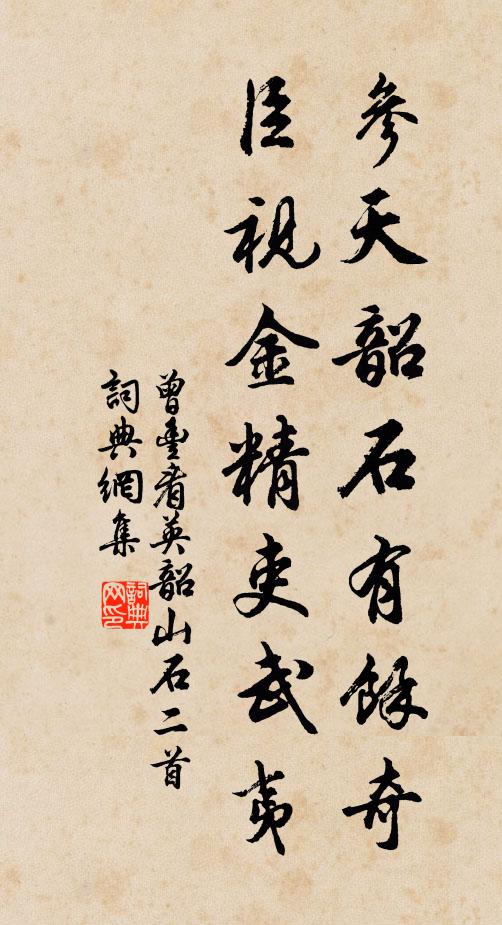 參天韶石有餘奇
臣視金精吏武夷
曾豐看英韶山石二首
詞典網集
詞典
网印